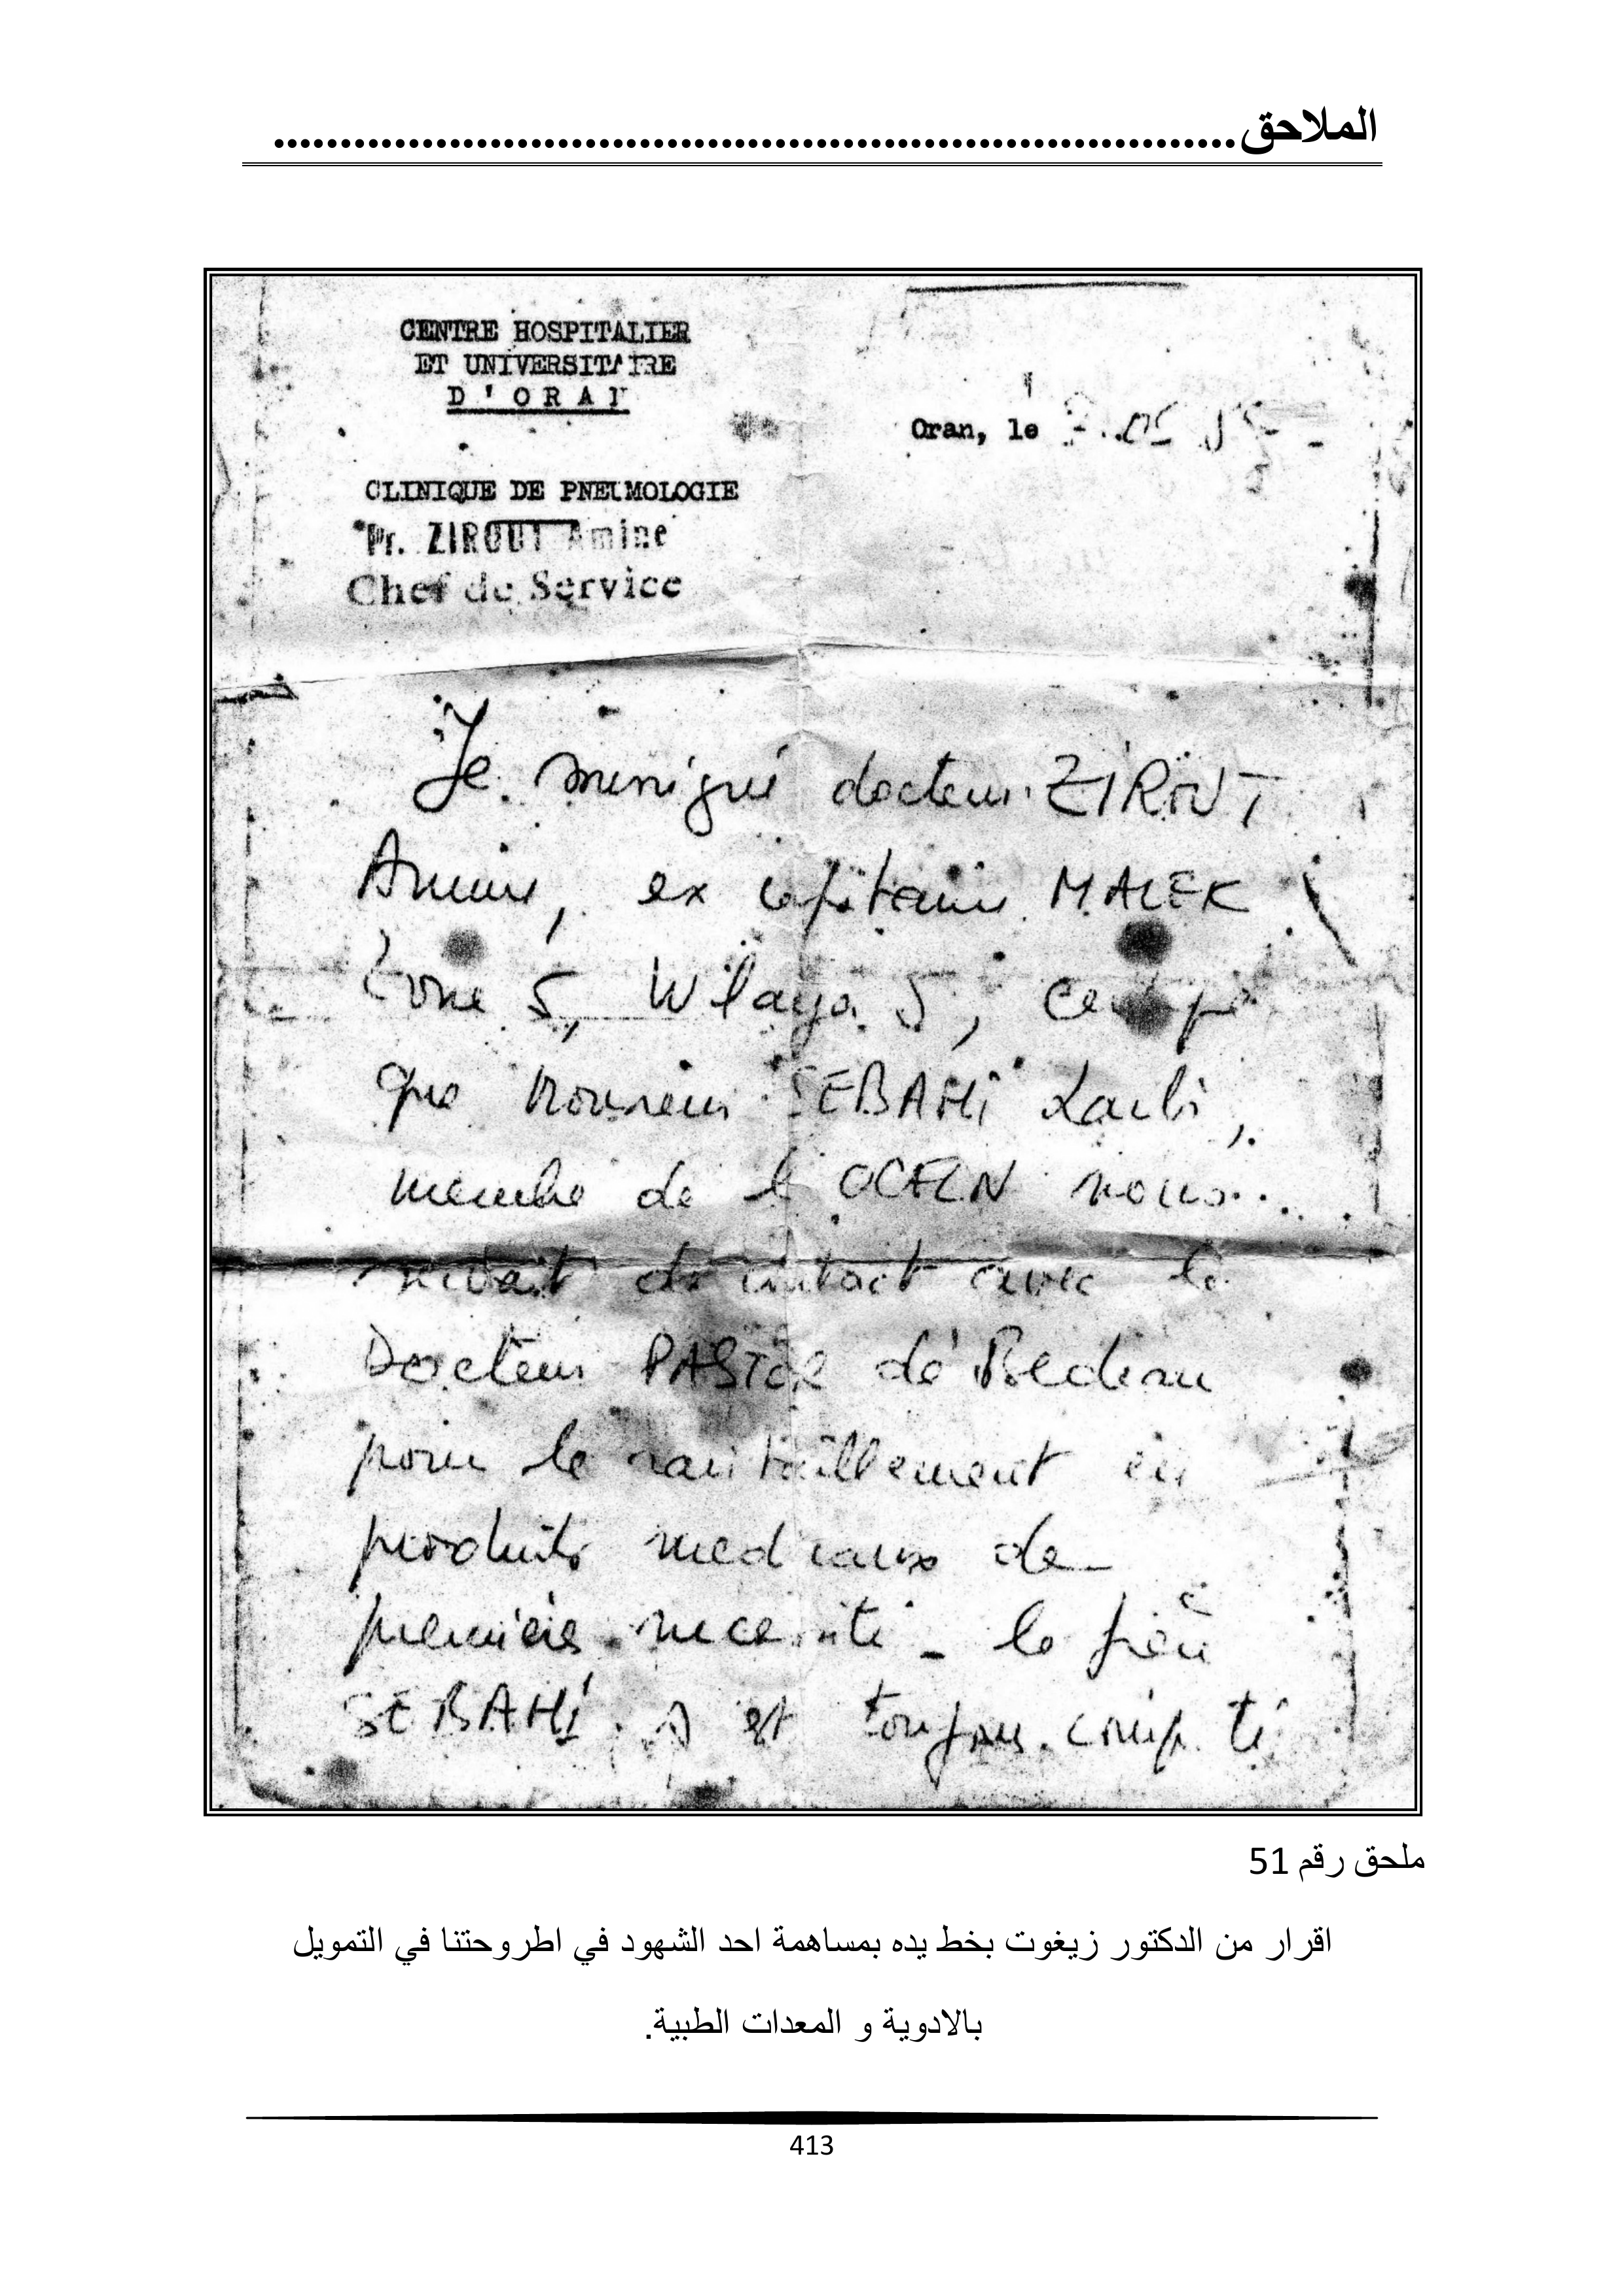 الملاحق........................................................................
CENTRE HOSPITALIER
ET UNIVERSITAIRE
D'ORAN
Oran, le
CLINIQUE DE PNEUMOLOGIE
Pr. ZIROUT Amine
Chef de Service
Je soussigné docteur ZIROUT
Amine, ex capitaine MALEK
Zone 5, Wilaya 5, certifie
que Monsieur SEBAHI Larbi,
membre de l'OCFLN nous
servait de contact avec le
Docteur PASTOR de Bedeau
pour le ravitaillement en
produits medicaux de
première necessité - le frère
SEBAHI s'est toujours
ملحق رقم 51
اقرار من الدكتور زيغوت بخط يده بمساهمة احد الشهود في اطروحتنا في التمويل
بالادوية و المعدات الطبية.
413